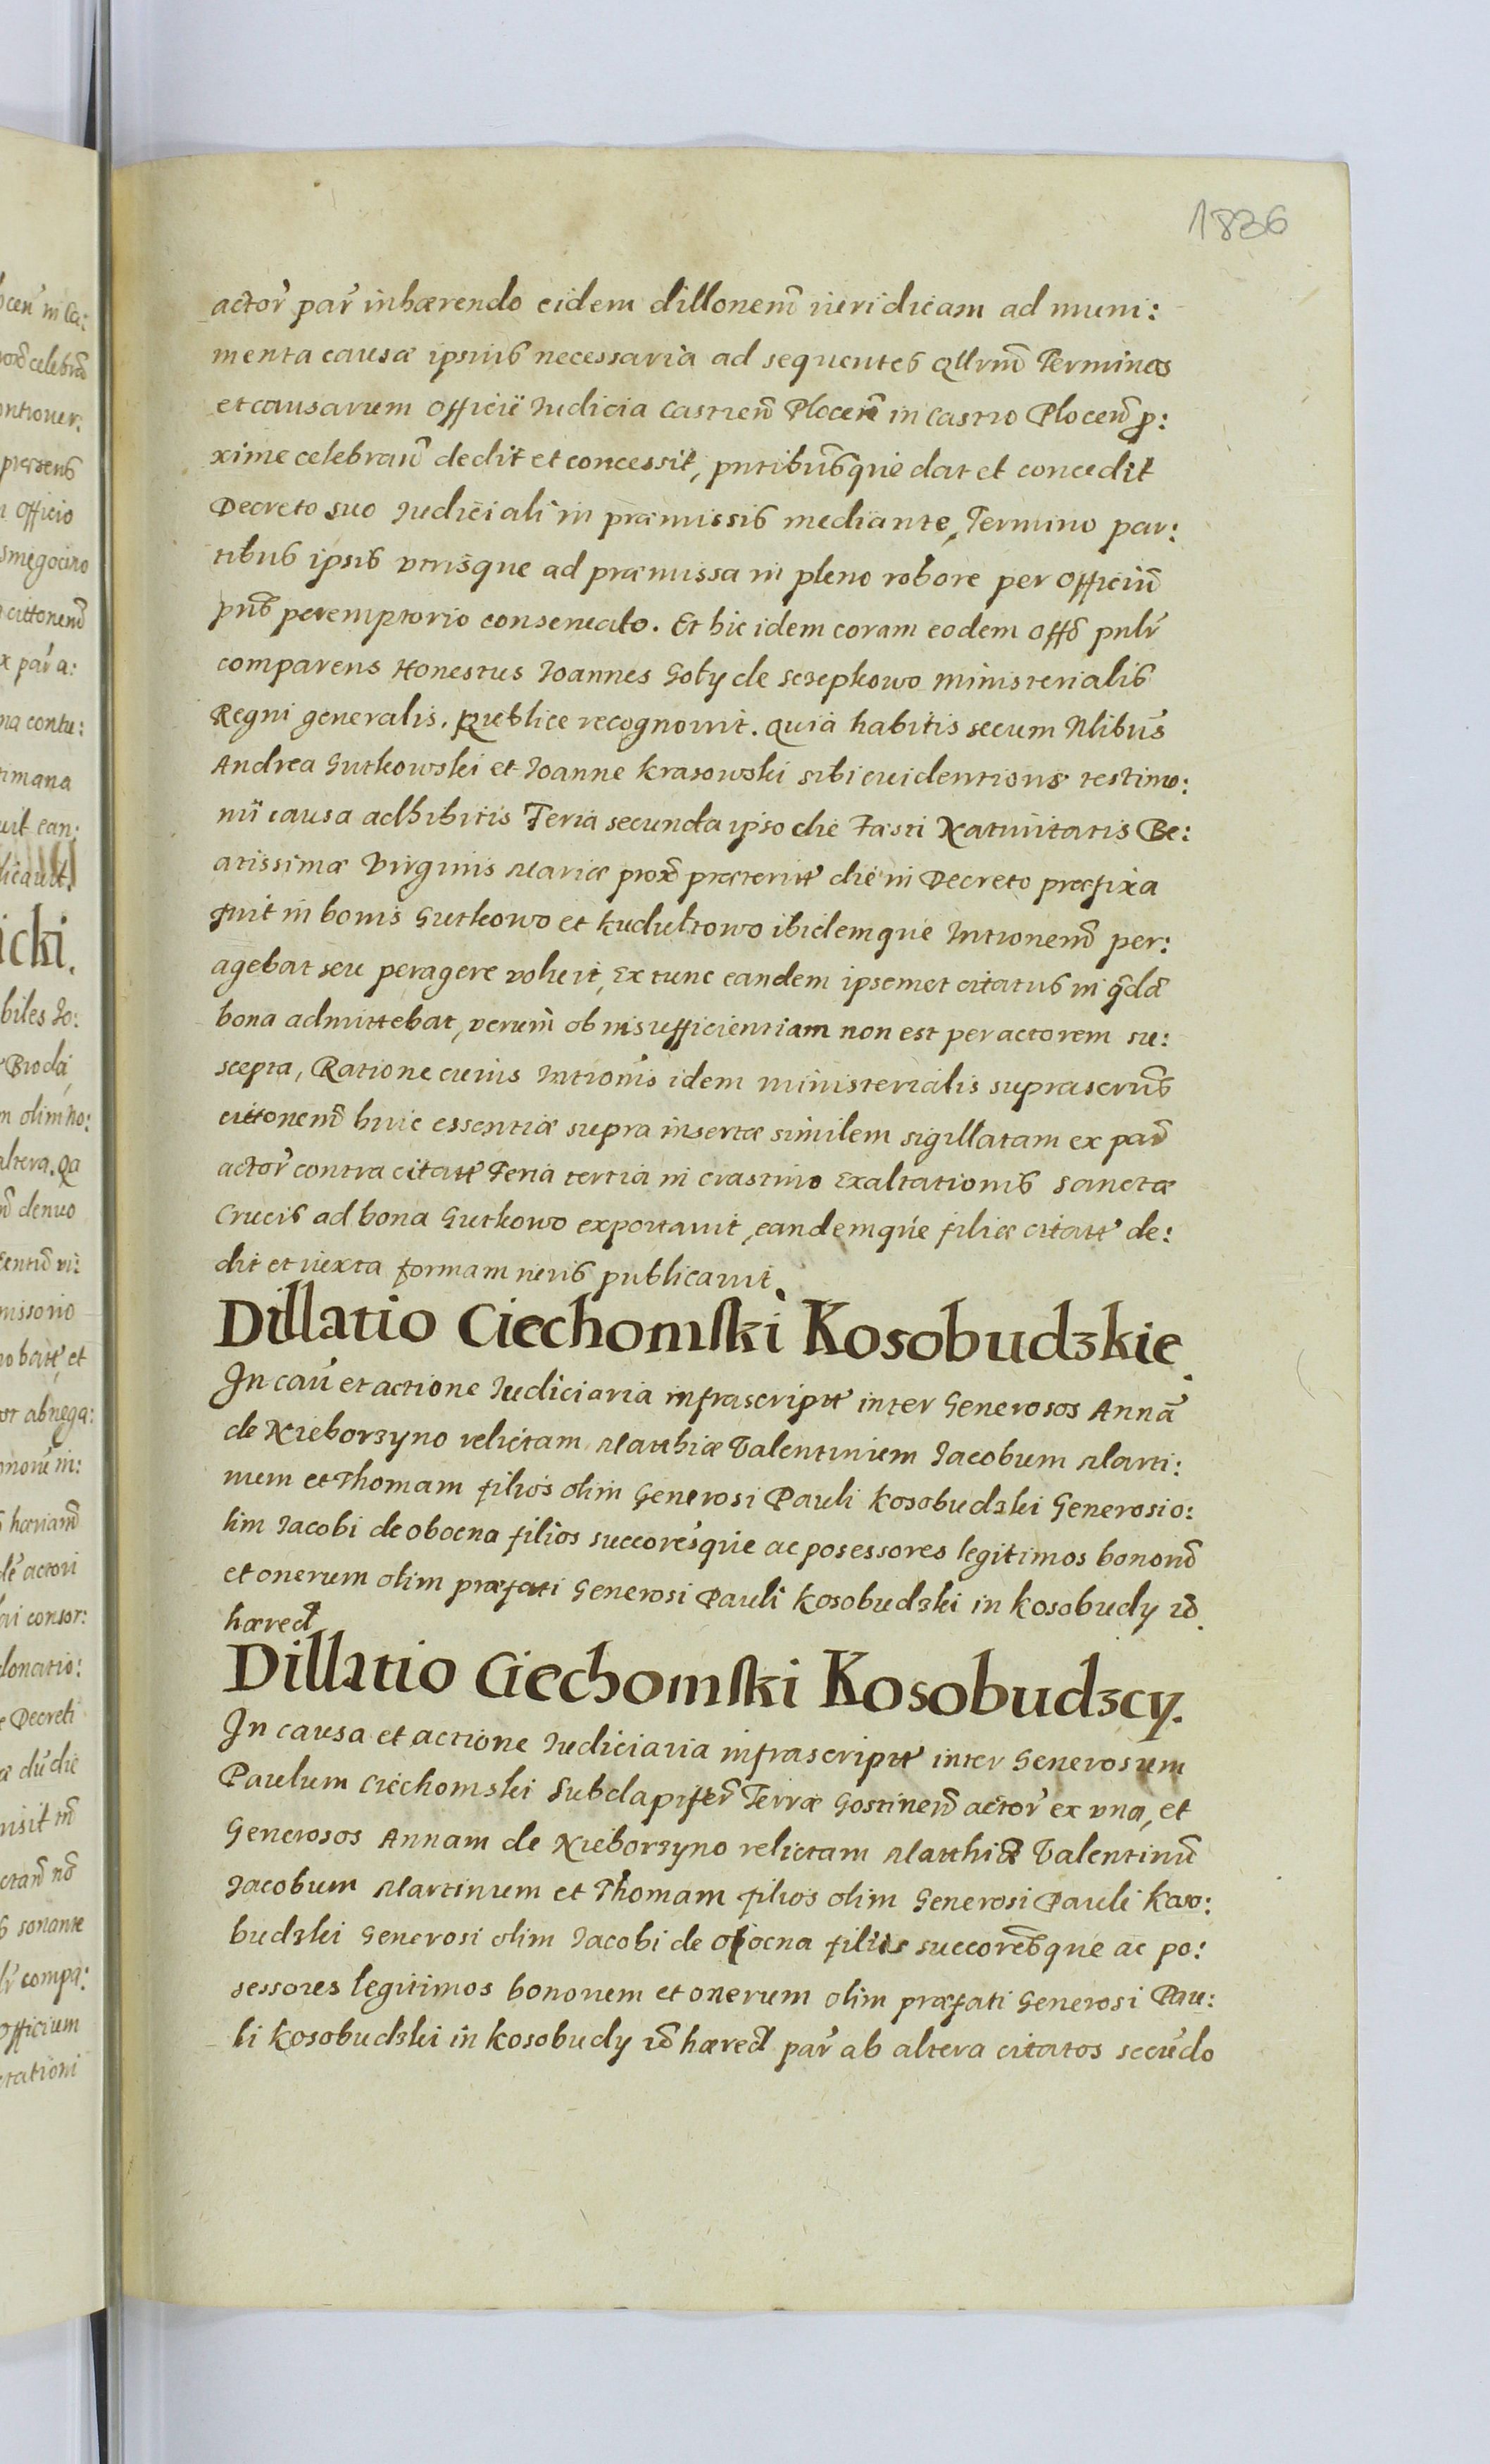 1836
actor̃ par̃ inhærendo eidem dillonem̃ iuridicam ad muni:
menta causæ ipsius necessaria ad sequentes qllrum̃ Terminos
et causarum Officii Iudicia Castreñ Ploceñ in Castro Ploceñ p:
xime celebrañ dedit et concessit, pntibusque dat et concedit
Decreto suo Iudiciali in præmissis mediante, Termino par:
tibus ipsis vtrisque ad præmissa in pleno robore per Officiũ
pñs peremptorio conseruato. Et hic idem coram eodem Offõ pnlr̃
comparens Honestus Ioannes Goły de Szczepkowo Ministerialis
Regni generalis, Publice recognouit. Quia habitis secum Nlibus
Andrea Gutkowski et Ioanne Krasowski sibi euidentioris testimo:
nii causa adhibitis Feria secunda ipso die Fæsti Natiuitatis Be:
atissimæ Virginis Mariæ prox̃ præterit̃ die in Decreto præfixa
fuit in bonis Gutkowo et Kudułtowo ibidemque Intronem̃ per:
agebat seu peragere voluit, Ex tunc eandem ipsemet citatus in q̃dã
bona admittebat, verum̃ ob insufficientiam non est per actorem su:
scepta, Ratione cuius Intronis idem ministerialis suprascrus̃
cittonem̃ huic essentiæ supra insertæ similem sigillatam ex par̃
actor̃ contra citatt̃ Feria tertia in crastino Exaltationis Sanctæ
Crucis ad bona Gutkowo exportauit, eandemque filiæ citatt̃ de:
dit et iuxta formam iuris publicauit.
Dillatio Ciechomski Kosobudzkie.
In cau͂ et actione Iudiciaria infrascriptt̃ inter Generosos Annã
de Nieborzyno relictam Matthiæ Valentinum Iacobum Marti:
num et Thomam filios olim Generosi Pauli Kosobudzki Generosi o:
lim Iacobi de obocna filios succoresque ac posessores legitimos bonorũ
et onerum olim præfati Generosi Pauli Kosobudzki in Kosobudy ið.
hæred
Dillatio Ciechomski Kosobudzcy.
In causa et actione Iudiciaria infrascriptt̃ inter Generosum
Paulum Ciechomski Subdapifer̃ Terræ Gostineñ actor̃ ex vna, et
Generosos Annam de Nieborzyno relictam Matthiæ Valentinũ
Iacobum Martinum et Thomam filios olim Generosi Pauli Koso:
budzki Generosi olim Iacobi de obocna filios succoresque ac po:
sessores legitimos bonorum et onerum olim præfati Generosi Pau:
li Kosobudzki in Kosobudy ið hæred par̃ ab altera citatos secũdo